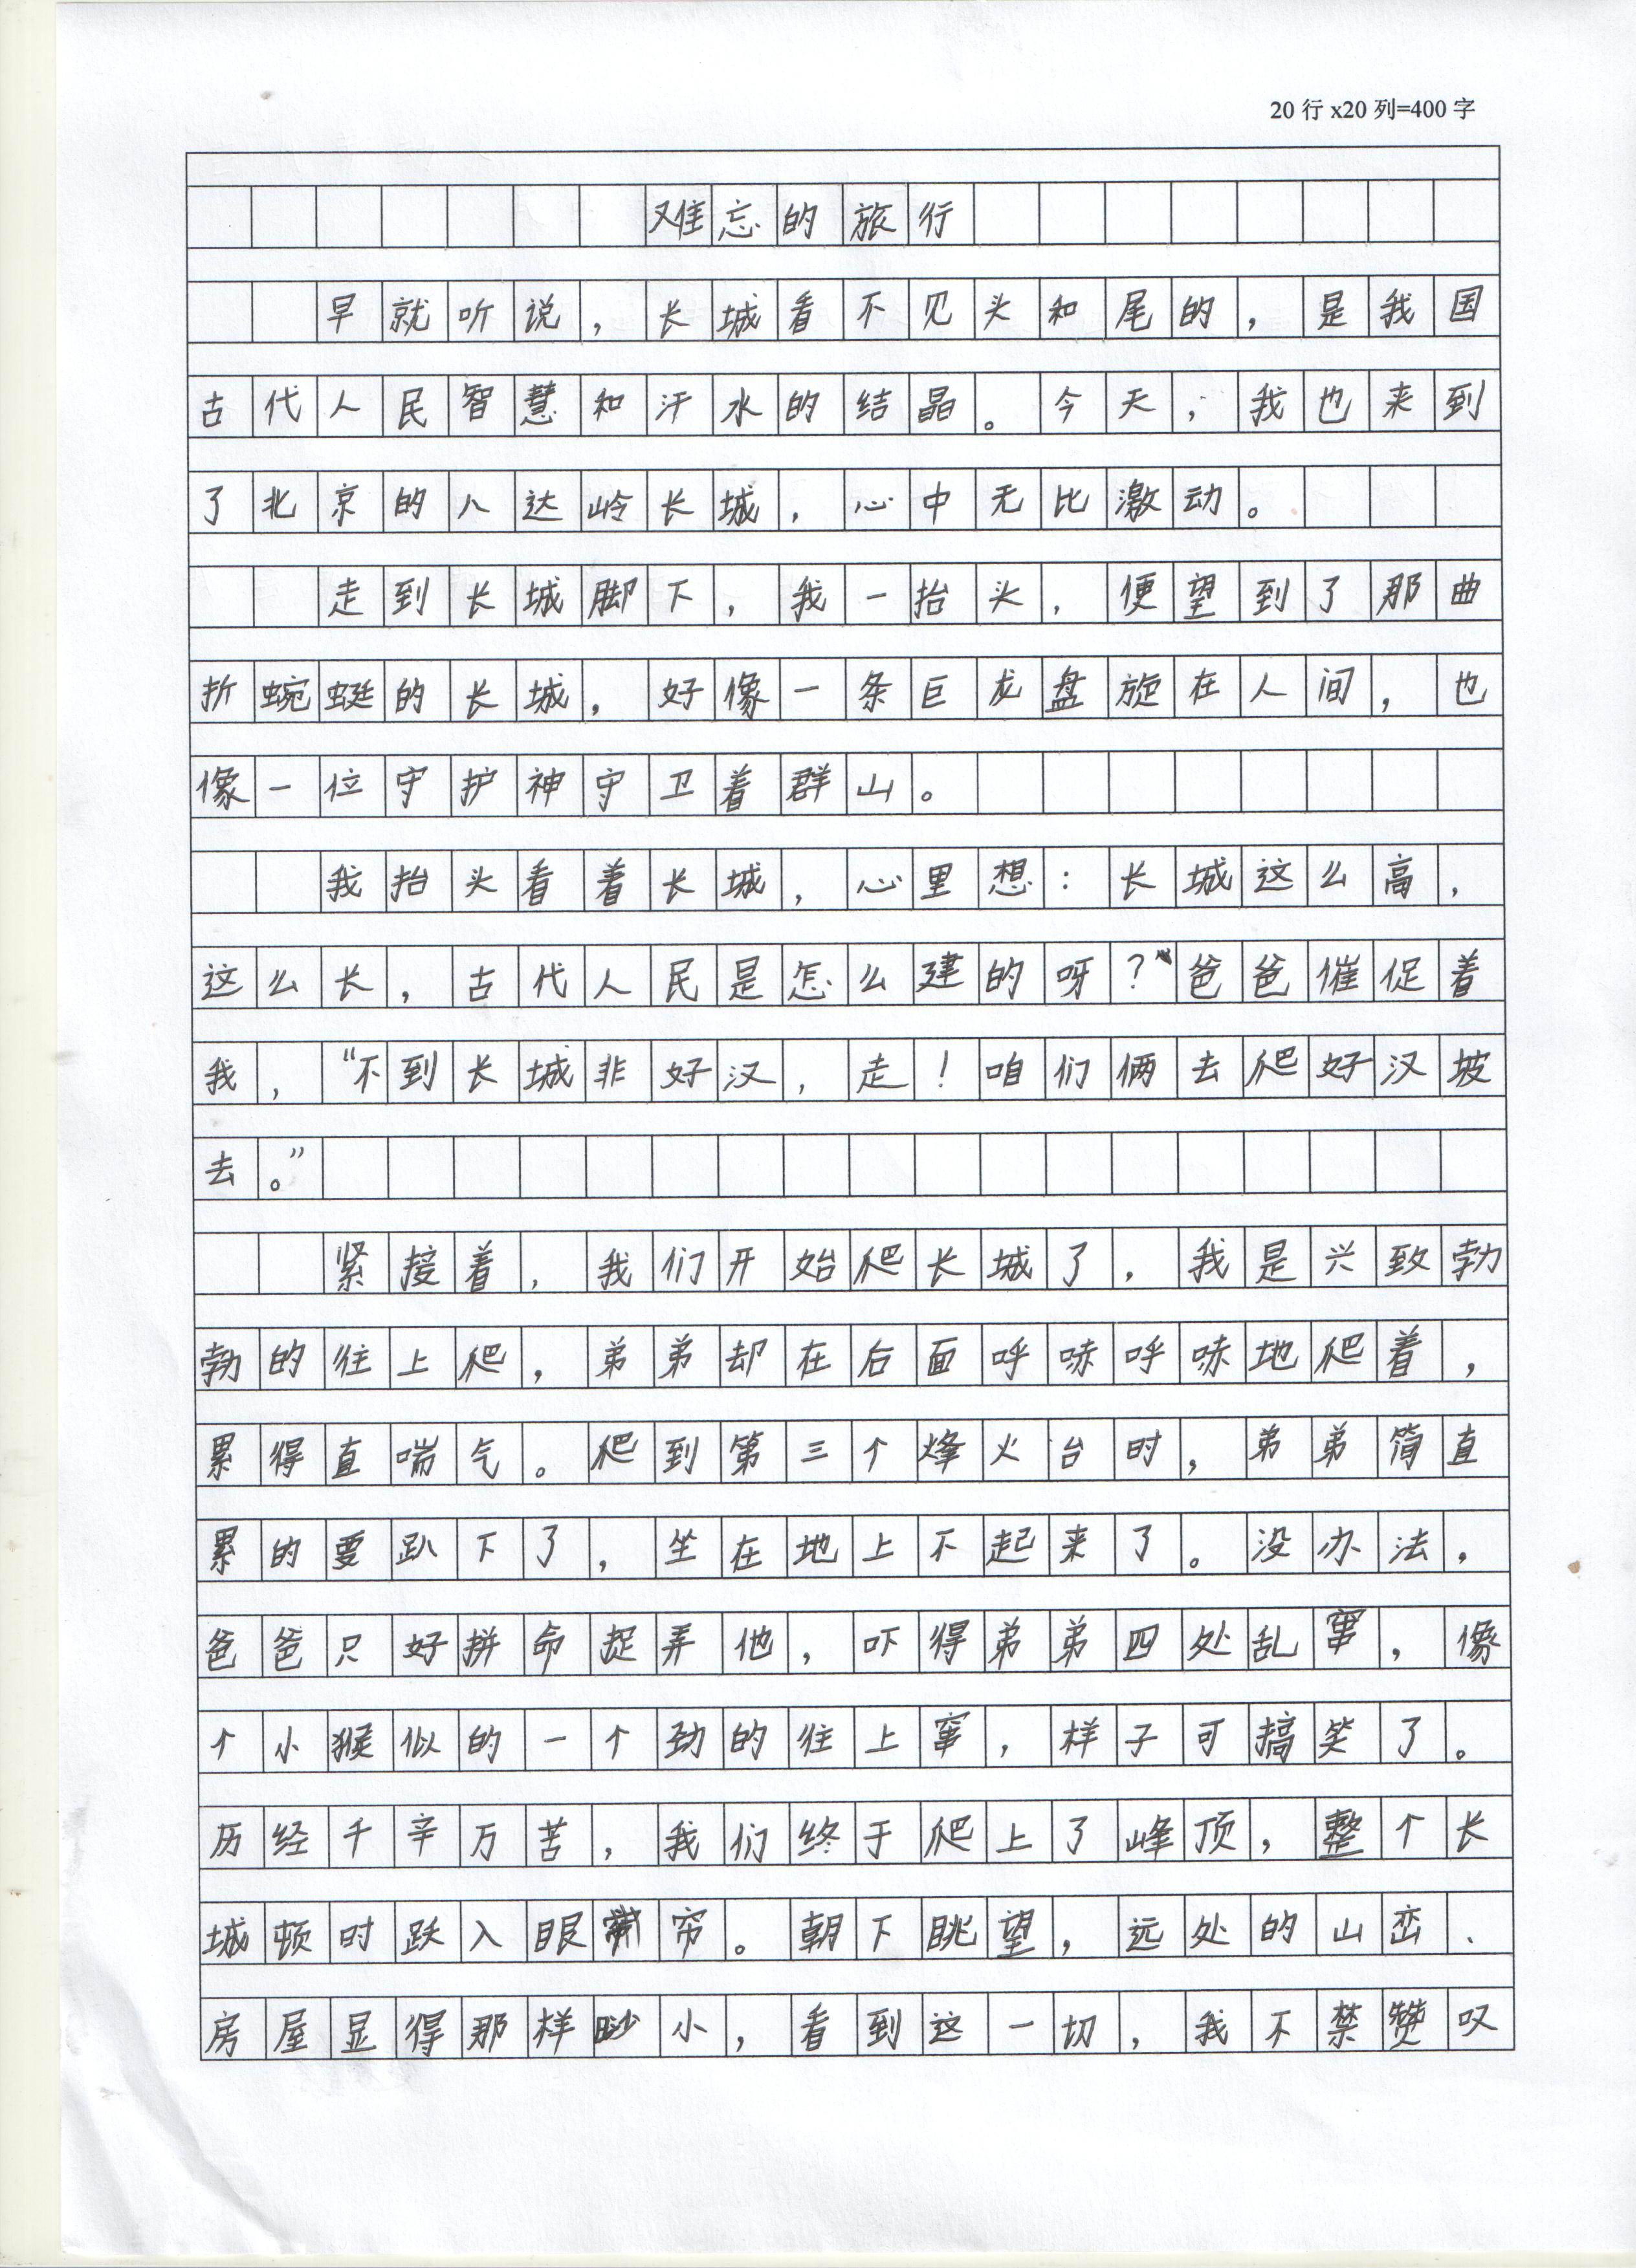 20行x20列=400字
难忘的旅行
早就听说，长城看不见头和尾的，是我国
古代人民智慧和汗水的结晶。今天，我也来到
了北京的八达岭长城，心中无比激动。
走到长城脚下，我一抬头，便望到了那曲
折蜿蜒的长城，好像一条巨龙盘旋在人间，也
像一位守护神守卫着群山。
我抬头看着长城，心里想：长城这么高，
这么长，古代人民是怎么建的呀？爸爸催促着
我，“不到长城非好汉，走！咱们俩去爬好汉坡
去。”
紧接着，我们开始爬长城了，我是兴致勃
勃的往上爬，弟弟却在后面呼哧呼哧地爬着，
累得直喘气。爬到第三个烽火台时，弟弟简直
累的要趴下了，坐在地上不起来了。没办法，
爸爸只好拼命捉弄他，吓得弟弟四处乱窜，像
个小猴似的一个劲的往上窜，样子可搞笑了。
历经千辛万苦，我们终于爬上了峰顶，整个长
城顿时跃入眼帘。朝下眺望，远处的山峦、
房屋显得那样眇小，看到这一切，我不禁赞叹